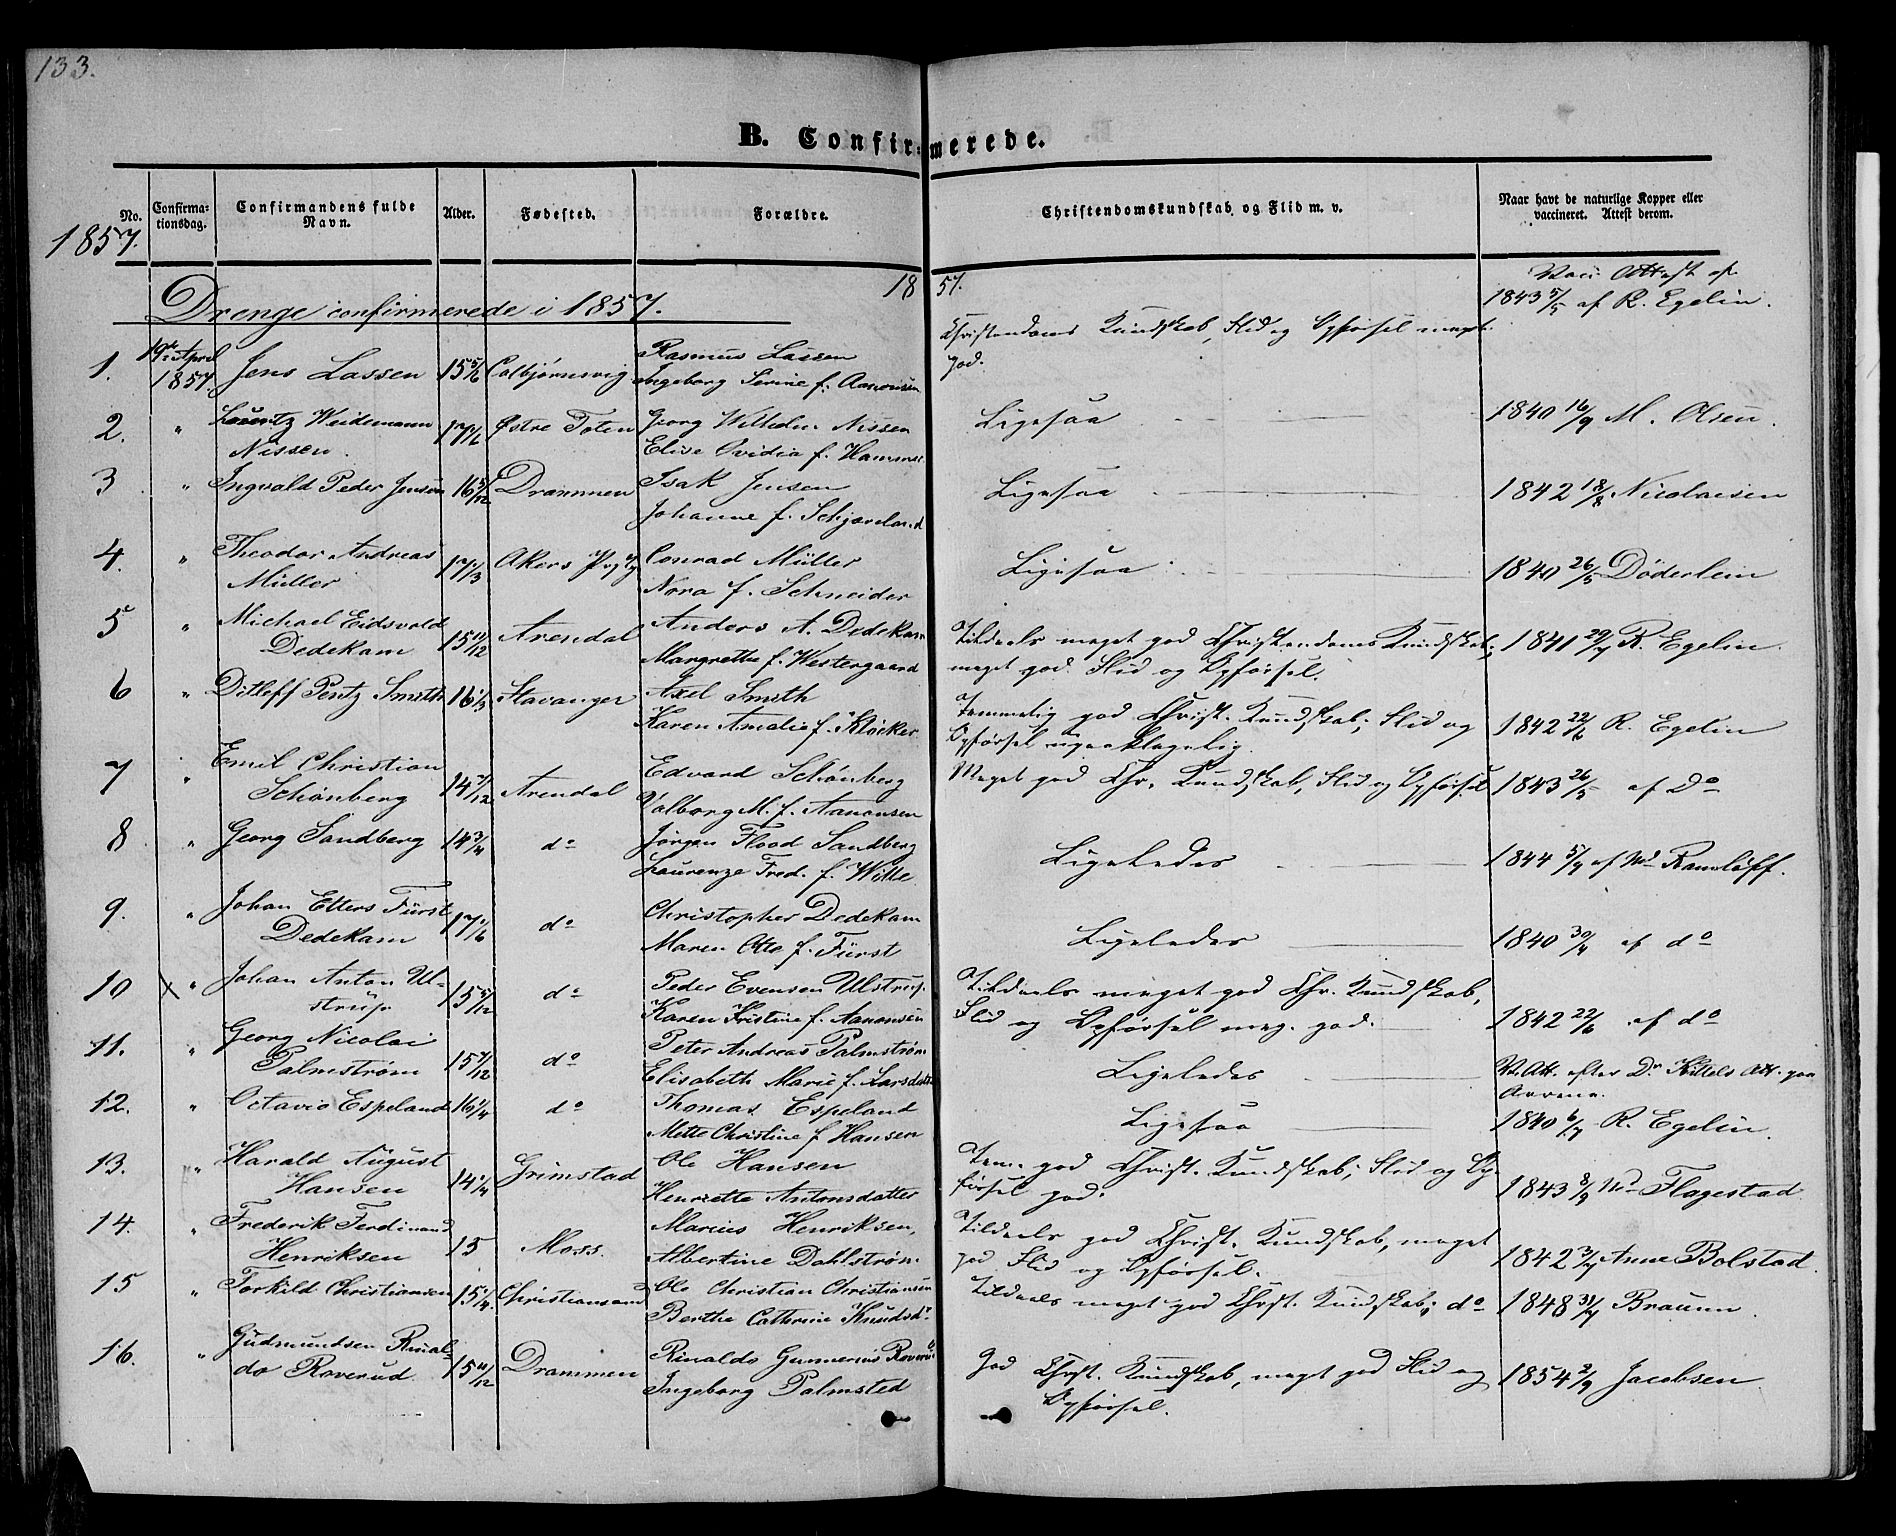 133.
B. Confirmerede.
No.
Confirma-
tionsdag.
Confirmandens fulde
Navn.
Alder.
Fødested.
Forældre.
Christendomskundskab og Flid m. v.
Naar havt de naturlige Kopper eller
vaccineret. Attest derom.
1857.
1857.
Drenge confirmerede i 1857.
Vacc. Attest af
1. 19de April 1857. Jens Lassen 15 5/6 Colbjørnsvig
Rasmus Lassen
Ingeborg Serine f. Aanonsen
Christendoms Kundskab, Flid og Opførsel meget
god.
1843 5/5 af R. Egelin.
2. " Lauritz Weidemann
Nissen.
17 1/6 Østre Toten
Georg Wilhelm Nissen
Elise Ovidia f. Hammer
Ligesaa
1840 16/9 M. Olsen.
3 " Ingvald Peder Jensen 16 5/12 Drammen
Isak Jensen
Johanne f. Schjaveland
Ligesaa
1842 18/8 Nicolaisen
4. " Theodor Andreas
Müller
17 1/3 Akers Prgj
Conrad Müller
Nora f. Schneider
Ligesaa
1840 26/5 Döderlein
5 " Michael Eidsvold
Dedekam
15 11/12 Arendal
Anders A. Dedekam
Margrethe f. Westergaard
Tildeels meget god Christendoms Kundskab;
meget god Flid og Opførsel.
1841 29/7 R. Egelin.
6 " Ditleff Pentz Smith 16 1/3 Stavanger
Axel Smith
Karen Amalie f. Kløcker
Temmelig god Christ. Kundskab; Flid og
Opførsel upaaklagelig.
1842 22/6 R. Egelin
7 " Emil Christian
Schønberg
14 7/12 Arendal
Edvard Schønberg
Valborg M. f. Aanonsen
Meget god Chr. Kundskab, Flid og Opførsel
1843 26/5 af Do
8 " Georg Sandberg 14 3/4 do
Jørgen Flood Sandberg
Laurenze Fred. f. Wille
Ligeledes
1844 5/7 af Md Ramløff.
9. " Johan Ellers Fürst
Dedekam
17 1/6 do
Christopher Dedekam
Maren Ota f. Fürst
Ligeledes
1840 30/4 af do
10 X " Johan Anton Ul-
strup
15 5/12 do
Peder Evensen Ulstrup.
Karen Kristine f. Aanonsen
Tildeels meget god Chr. Kundskab,
Flid og Opførsel meg. god.
1842 22/6 af do
11. " Georg Nicolai
Palmstrøm
15 7/12 do
Peter Andreas Palmstrøm
Elisabeth Marie f. Larsdatter
Ligeledes
V. Att. efter Dr Kittels Att. paa
Armene.
12. " Octavio Espeland 16 1/4 do
Thomas Espeland
Mette Christine f Hansen
Ligesaa
1840 6/7 R. Egelin.
13. " Harald August
Hansen
14 1/4 Grimstad
Ole Hansen
Henriette Antonsdatter
Tem. god Christ. Kundskab; Flid og Op-
førsel god.
1843 8/9 Md Flagestad
14. " Frederik Ferdinand
Henriksen
15 Moss.
Marius Henriksen,
Albertine Dahlstrøm
Tildeels god Christ. Kundskab, meget
god Flid og Opførsel.
1842 3/7 Anne Bolstad.
15 " Torkild Christiansen 15 1/4 Christiansand
Ole Christian Christiansen
Berthe Cathrine Knudsdr
Tildeels meget god Christ. Kundskab; do
1848 31/7 Braunn.
16. " Gudmundsen Rinal-
do Roverud
15 11/12 Drammen
Rinaldo Gunnerius Roverud
Ingeborg Palmsted
God Christ. Kundskab, meget god Flid og
Opførsel.
1854 2/9 Jacobsen